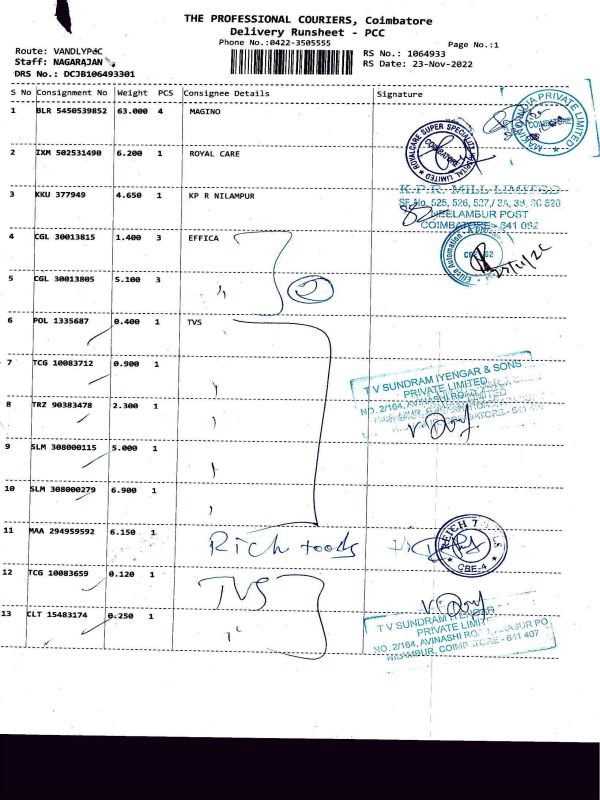 THE PROFESSIONAL COURIERS, Coimbatore
Delivery Runsheet - PCC
Phone No.:0422-3505555
Page No.:1
Route: VANDLYPCC
Staff: NAGARAJAN
DRS No.: DCJB106493301
RS No.: 1064933
RS Date: 23-Nov-2022
S No Consignment No Weight PCS Consignee Details Signature
1 BLR 5450539852 63.000 4 MAGINO
MAKINO INDIA PRIVATE LIMITED
COIMBATORE
2 IXM 502531490 6.200 1 ROYAL CARE
ROYALCARE SUPER SPECIALITY HOSPITAL LIMITED
COIMBATORE
3 KKU 377949 4.650 1 KP R NILAMPUR
K.P.R. MILL LIMITED
SF.No. 525, 526, 527/ 3A, 3B, 3C 528
NEELAMBUR POST
COIMBATORE - 641 062
4 CGL 30013815 1.400 3 EFFICA
Effica Automation
5 CGL 30013805 5.100 3 "
2
6 POL 1335687 0.400 1 TVS
7 TCG 10083712 0.900 1
8 TRZ 90383478 2.300 1
T V SUNDRAM IYENGAR & SONS
PRIVATE LIMITED
NO. 2/164, AVINASHI ROAD
9 SLM 308000115 5.000 1
10 SLM 308000279 6.900 1
11 MAA 294959592 6.150 1 Rich foods
CBE-4
12 TCG 10083659 0.120 1 TVS
13 CLT 15483174 0.250 1 "
T V SUNDRAM IYENGAR
PRIVATE LIMITED
NO. 2/164, AVINASHI ROAD
COIMBATORE - 641 407